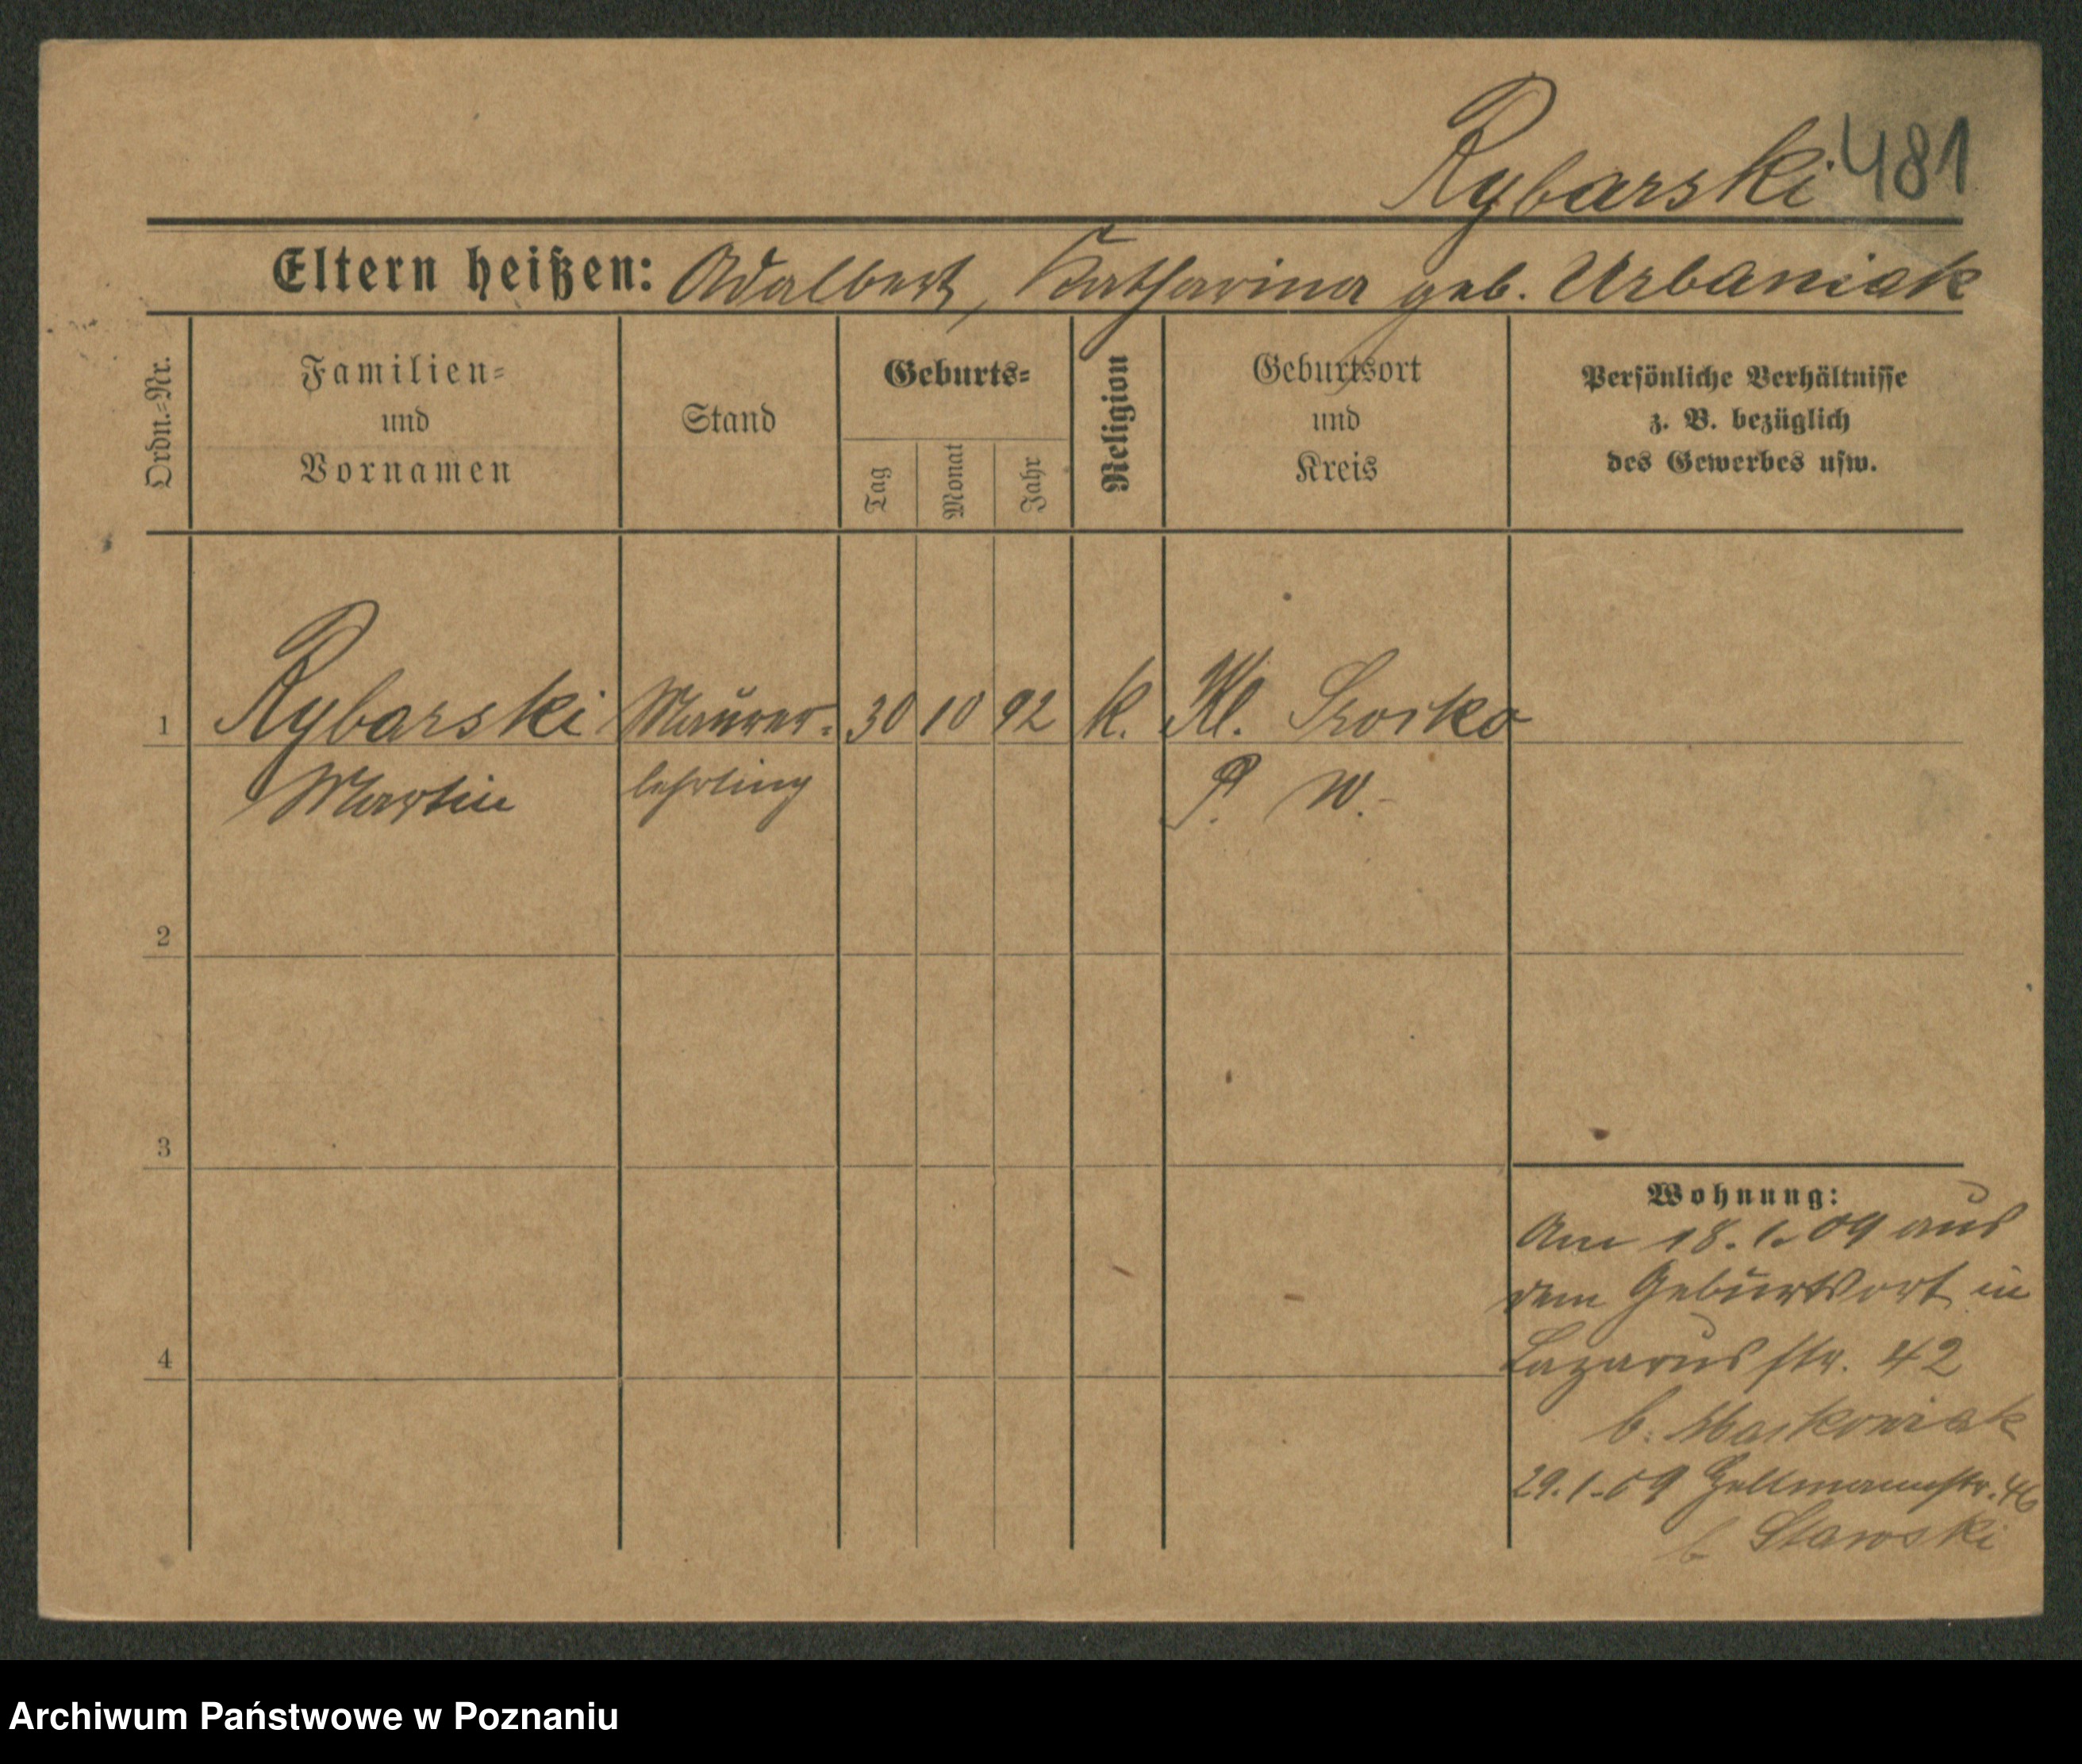 Rybarski 481
Eltern heißen: Adalbert, Katharina geb. Urbaniak
Ordn.=Nr.
Familien=
und
Vornamen
Stand
Geburts=
Tag
Monat
Jahr
Religion
Geburtsort
und
Kreis
Persönliche Verhältnisse
z. B. bezüglich
des Gewerbes usw.
1 Rybarski Maurer- 30 10 92 k. Kl.
Martin lehrling P. W.
2
3
4
Wohnung:
Am 18.1.09 aus
dem Geburtsort in
Lazarusstr. 42
b.
29.1.09
b Stawski
Archiwum Państwowe w Poznaniu